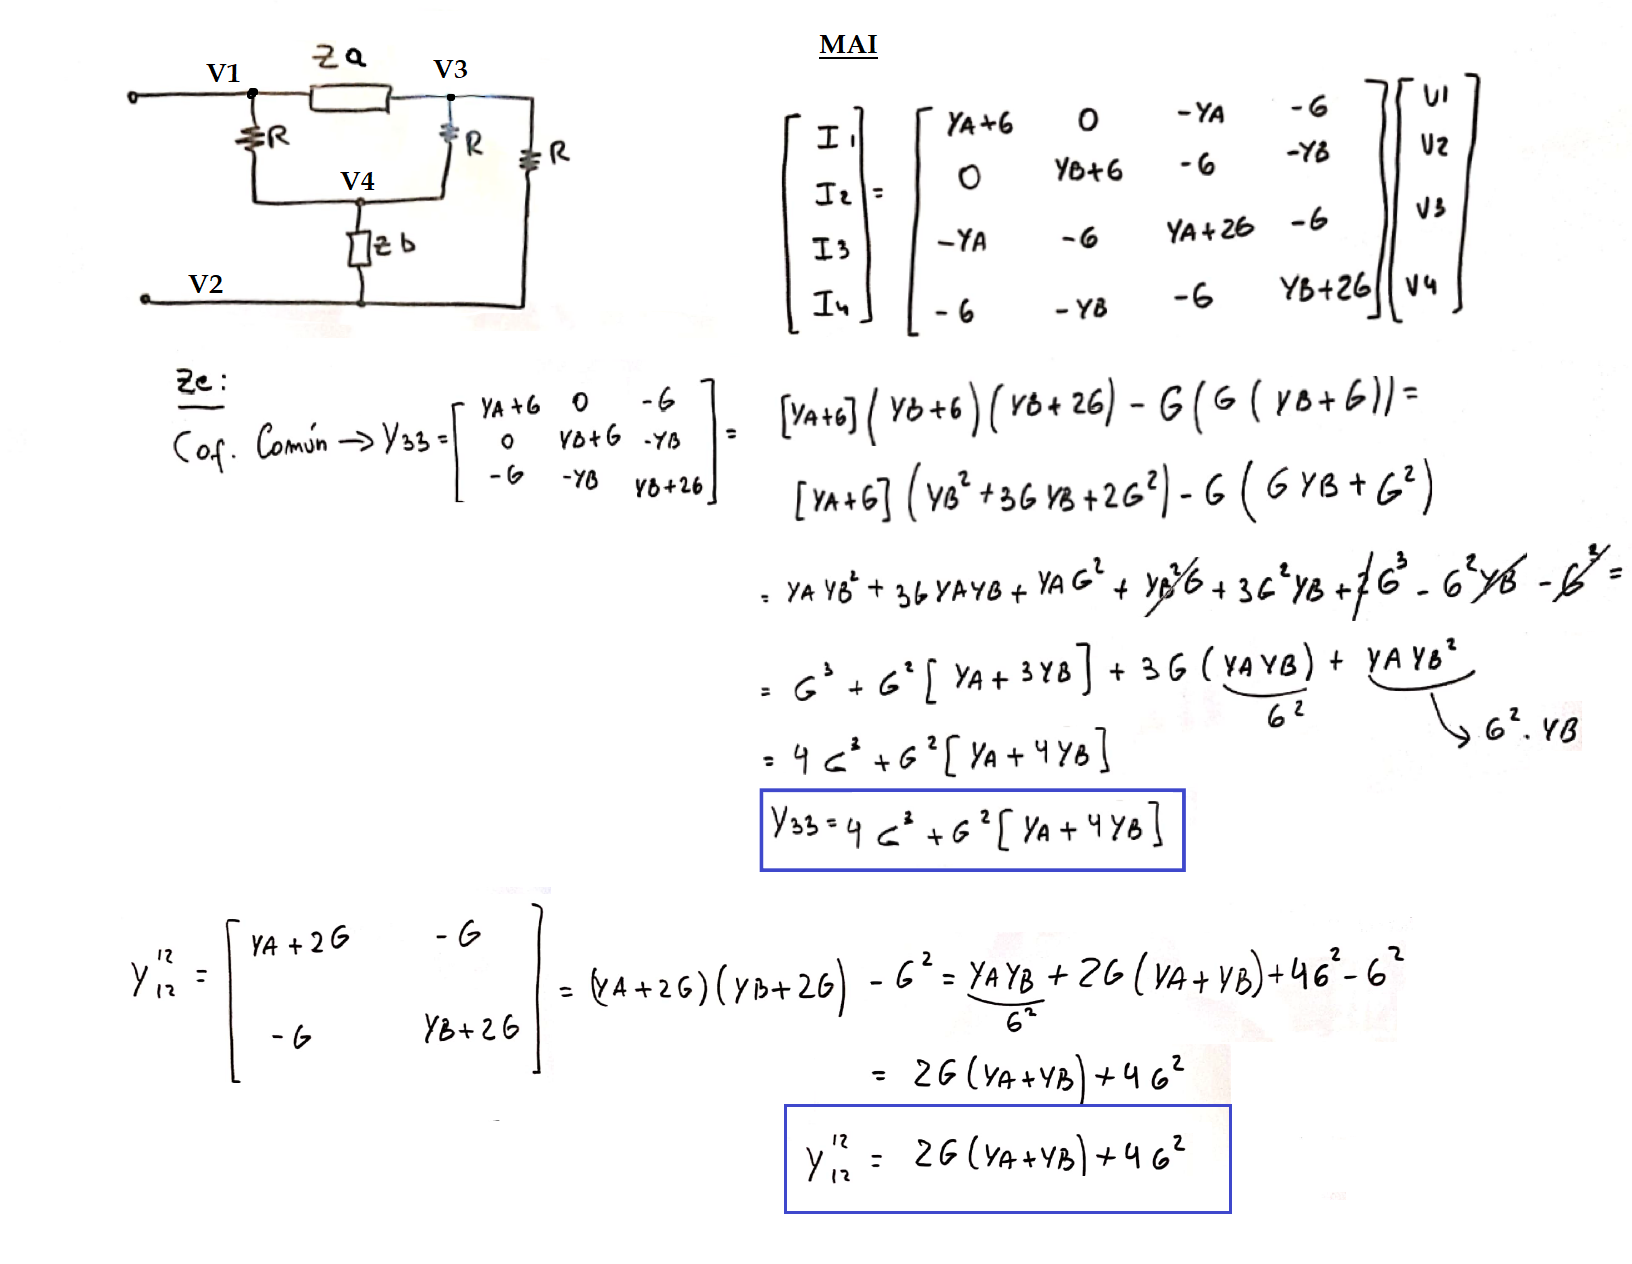 MAI
Za
V1
V3
R
R
R
V4
Zb
V2
[I1 I2 I3 I4] = [YA+G 0 -YA -G
0 YB+G -G -YB
-YA -G YA+2G -G
-G -YB -G YB+2G] [V1 V2 V3 V4]
Ze:
Cof. Común → Y33 = [YA+G 0 -G
0 YB+G -YB
-G -YB YB+2G] =
[YA+G](YB+G)(YB+2G) - G(G(YB+G)) =
[YA+G](YB²+3GYB+2G²) - G(GYB+G²)
= YAYB² + 3GYAYB + YAG² + YB²G + 3G²YB + 2G³ - G²YB - G³ =
= G³ + G²[YA+3YB] + 3G(YAYB) + YAYB²
G²
G².YB
= 4G³ + G²[YA+4YB]
Y33 = 4G³ + G²[YA+4YB]
Y¹²₁₂ = [YA+2G -G
-G YB+2G] = (YA+2G)(YB+2G) - G² = YAYB + 2G(YA+YB) + 4G² - G²
G²
= 2G(YA+YB) + 4G²
Y¹²₁₂ = 2G(YA+YB) + 4G²